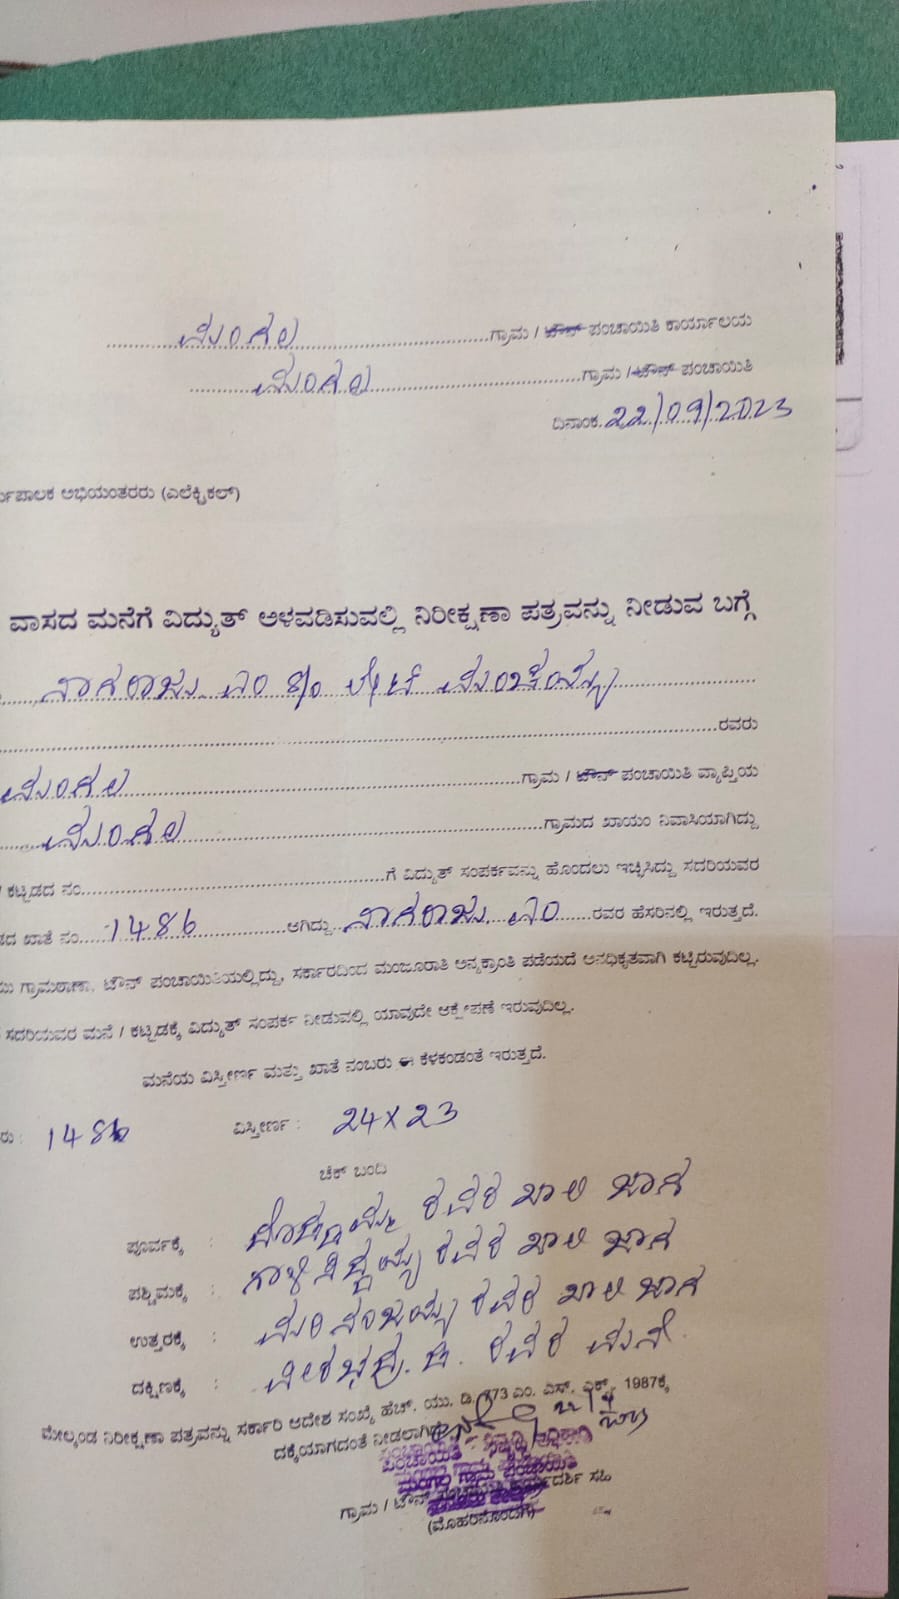 ಮಂಗಲ ಗ್ರಾಮ / ಟೌನ್ ಪಂಚಾಯಿತಿ ಕಾರ್ಯಾಲಯ
ಮಂಗಲ ಗ್ರಾಮ / ಟೌನ್ ಪಂಚಾಯಿತಿ
ದಿನಾಂಕ. 22/09/2023
ರ್ಯಪಾಲಕ ಅಭಿಯಂತರರು (ಎಲೆಕ್ಟ್ರಿಕಲ್)
ವಾಸದ ಮನೆಗೆ ವಿದ್ಯುತ್ ಅಳವಡಿಸುವಲ್ಲಿ ನಿರೀಕ್ಷಣಾ ಪತ್ರವನ್ನು ನೀಡುವ ಬಗ್ಗೆ
ನಾಗರಾಜು ಎಂ ಲೇಟ್ ಮಂಚಯ್ಯ
ರವರು
ಮಂಗಲ ಗ್ರಾಮ / ಟೌನ್ ಪಂಚಾಯಿತಿ ವ್ಯಾಪ್ತಿಯ
ಮಂಗಲ ಗ್ರಾಮದ ಖಾಯಂ ನಿವಾಸಿಯಾಗಿದ್ದು
/ ಕಟ್ಟಡದ ನಂ. ಗೆ ವಿದ್ಯುತ್ ಸಂಪರ್ಕವನ್ನು ಹೊಂದಲು ಇಚ್ಛಿಸಿದ್ದು ಸದರಿಯವರ
ಡದ ಖಾತೆ ನಂ. 1486 ಆಗಿದ್ದು ನಾಗರಾಜು ಎಂ ರವರ ಹೆಸರಿನಲ್ಲಿ ಇರುತ್ತದೆ.
ಗ್ರಾಮಠಾಣಾ, ಟೌನ್ ಪಂಚಾಯಿತಿಯಲ್ಲಿದ್ದು, ಸರ್ಕಾರದಿಂದ ಮಂಜೂರಾತಿ ಅನ್ಯಕ್ರಾಂತಿ ಪಡೆಯದೆ ಅನಧಿಕೃತವಾಗಿ ಕಟ್ಟಿರುವುದಿಲ್ಲ.
ಸದರಿಯವರ ಮನೆ / ಕಟ್ಟಡಕ್ಕೆ ವಿದ್ಯುತ್ ಸಂಪರ್ಕ ನೀಡುವಲ್ಲಿ ಯಾವುದೇ ಆಕ್ಷೇಪಣೆ ಇರುವುದಿಲ್ಲ.
ಮನೆಯ ವಿಸ್ತೀರ್ಣ ಮತ್ತು ಖಾತೆ ನಂಬರು ಈ ಕೆಳಕಂಡಂತೆ ಇರುತ್ತದೆ.
ರು : 1486 ವಿಸ್ತೀರ್ಣ : 24 X 23
ಚೆಕ್ ಬಂದಿ
ಪೂರ್ವಕ್ಕೆ : ರವರ ಖಾಲಿ ಜಾಗ
ಪಶ್ಚಿಮಕ್ಕೆ : ರವರ ಖಾಲಿ ಜಾಗ
ಉತ್ತರಕ್ಕೆ : ರವರ ಖಾಲಿ ಜಾಗ
ದಕ್ಷಿಣಕ್ಕೆ : ವೀರಭದ್ರ. ರವರ ಮನೆ
ಮೇಲ್ಕಂಡ ನಿರೀಕ್ಷಣಾ ಪತ್ರವನ್ನು ಸರ್ಕಾರಿ ಆದೇಶ ಸಂಖ್ಯೆ ಹೆಚ್. ಯು. ಡಿ. 773 ಎಂ. ಎಸ್. ಎಕ್ಸ್. 1987ಕ್ಕೆ
ದಕ್ಕೆಯಾಗದಂತೆ ನೀಡಲಾಗಿದೆ
ಗ್ರಾಮ / ಟೌನ್ ಪಂಚಾಯಿತಿ ಕಾರ್ಯದರ್ಶಿ ಸಹಿ
(ಮೊಹರಿನೊಂದಿಗೆ)